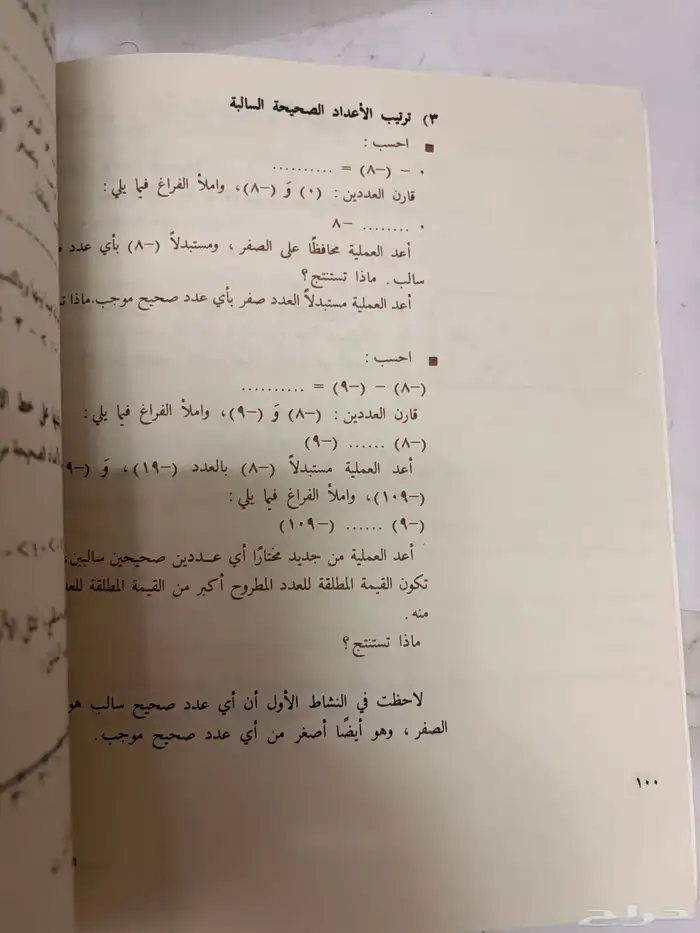 ٣) ترتيب الأعداد الصحيحة السالبة
■ احسب :
٠ − (−٨) = ..........
قارن العددين : (٠) وَ (−٨)، واملأ الفراغ فيما يلي :
٠ ........ −٨
أعد العملية محافظًا على الصفر ، ومستبدلاً (−٨) بأي عدد
سالب . ماذا تستنتج ؟
أعد العملية مستبدلاً العدد صفر بأي عدد صحيح موجب.ماذا
■ احسب :
(−٨) − (−٩) = ..........
قارن العددين : (−٨) وَ (−٩)، واملأ الفراغ فيما يلي :
(−٨) ...... (−٩)
أعد العملية مستبدلاً (−٨) بالعدد (−١٩)، وَ (−٩
(−١٠٩)، واملأ الفراغ فيما يلي :
(−٩) ...... (−١٠٩)
أعد العملية من جديد مختارًا أي عــددين صحيحين سالبين،
تكون القيمة المطلقة للعدد المطروح أكبر من القيمة المطلقة
منه .
ماذا تستنتج ؟
لاحظت في النشاط الأول أن أي عدد صحيح سالب هو
الصفر ، وهو أيضًا أصغر من أي عدد صحيح موجب .
١٠٠
حراج